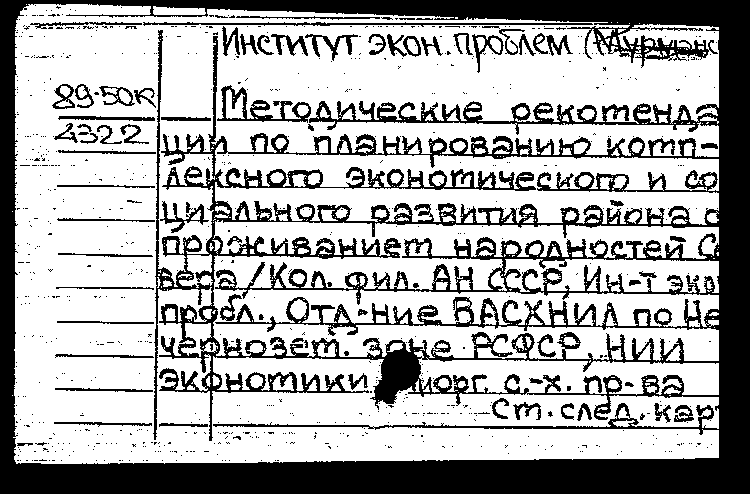 Институт экон. проблем (Мурманс
89-50к Методические рекоменда
4322 ции по планированию комп-
лексного экономического и со
циального развития района с
проживанием народностей Се
вера/Кол. фил. АН СССР, Ин-т экон
пробл., Отд-ние ВАСХНИЛ по Не
чернозем. зоне РСФСР, НИИ
экономики и орг. с.-х. пр-ва
См. след. карт